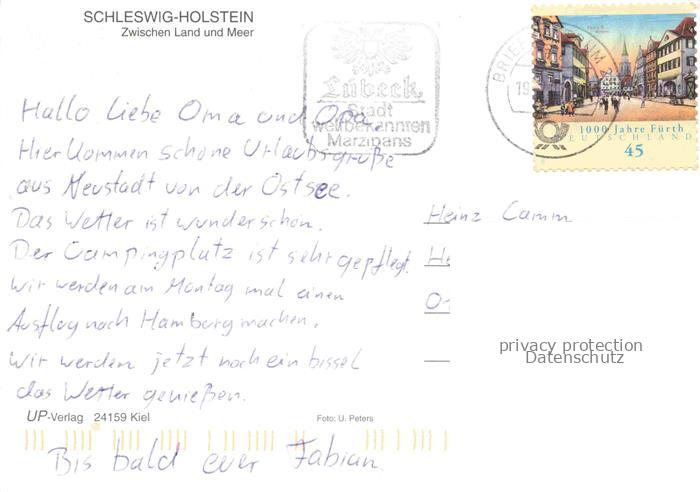 SCHLESWIG-HOLSTEIN
Zwischen Land und Meer
Lübeck
Stadt
weltbekannten
Marzipans
BRIEF
19
1000 Jahre Fürth
DEUTSCHLAND
45
Hallo liebe Oma und Opa
Hier Kommen schöne Urlaubsgrüße
aus Neustadt von der Ostsee.
Das Wetter ist wunderschön.
Der Campingplatz ist sehr gepflegt.
Wir werden am Montag mal einen
Ausflug nach Hamburg machen.
Wir werden jetzt noch ein bissel
das Wetter genießen.
Heinz Camm
privacy protection
Datenschutz
UP-Verlag 24159 Kiel
Foto: U. Peters
Bis bald euer Fabian